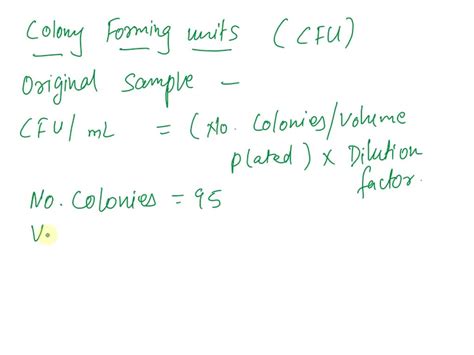 Colony Forming units (CFU)
Original Sample –
CFU/mL = (No. Colonies/Volume
plated) x Dilution
factor.
No. Colonies = 95
V